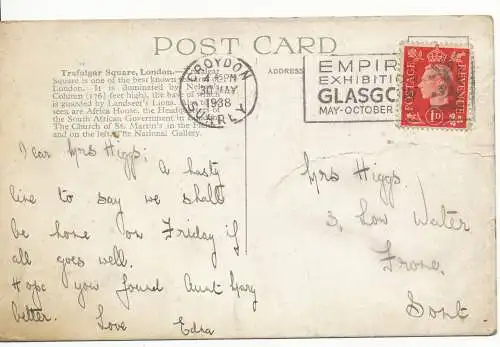 POST CARD
Trafalgar Square, London.
Square is one of the best known
London. It is dominated by
Column (176½ feet high), the base of which
is guarded by Landseer's Lions.
seen are Africa House, the
the South African Government in
The Church of St. Martin's in the
and on the left, the National Gallery.
ADDRESS
CROYDON
PM
30 MAY
1938
SURREY
EMPIRE
EXHIBITION
GLASGO
MAY-OCTOBER
POSTAGE
REVENUE
1D
Dear Mrs Higgs;
A hasty
line to say we shall
be home on Friday if
all goes well.
Hope you found Aunt Mary
better.
Love Edra
Mrs Higgs.
3, Low Water
Frome,
Somt